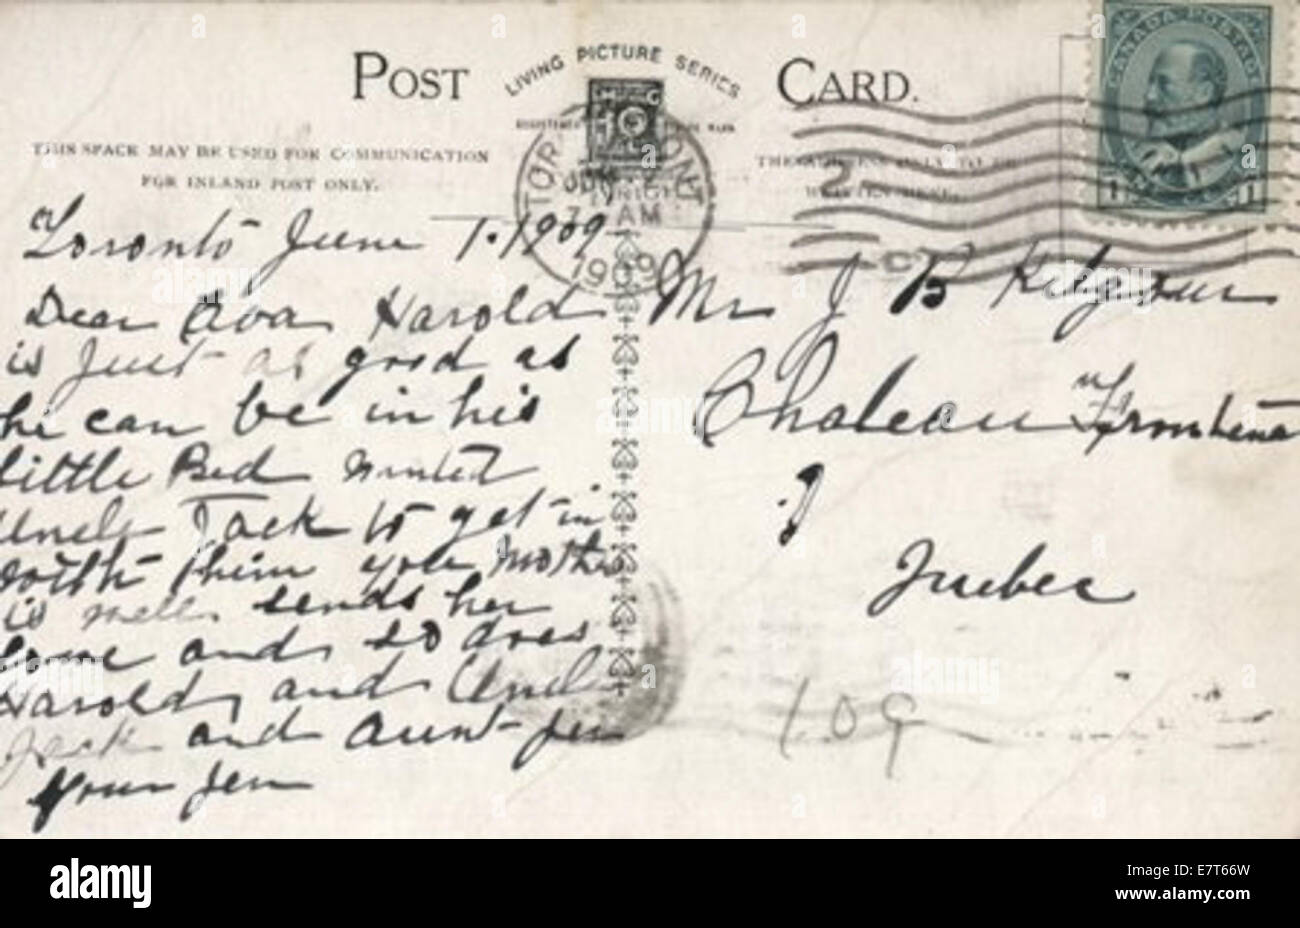 POST CARD.
LIVING PICTURE SERIES
THIS SPACE MAY BE USED FOR COMMUNICATION
FOR INLAND POST ONLY.
TORONTO ONT
7 AM
1909
CANADA POSTAGE
1 1
Toronto June 1. 1909
Dear Ava Harold
is just as good as
he can be in his
little Bed wanted
Uncle Jack to get in
with him your Mother
is well sends her
love and so does
Harold and Uncle
Jack and Aunt Jen
your Jen
Mr J B Kilgour
Chateau Frontena
Quebec
109
alamy
Image ID: E7T66W
www.alamy.com